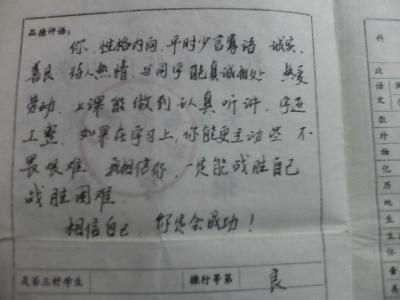 品德评语:
你，性格内向，平时少言寡语 诚实、
善良 待人热情，与同学能真诚相处 热爱
劳动，上课能做到认真听讲，字迹
工整，如果在学习上，你能更主动些 不
畏艰难 我相信你，一定能战胜自己
战胜困难.
相信自己，你定会成功！
是否三好学生
德行等第 良
科
政
语
数
外
物
化
历
地
生